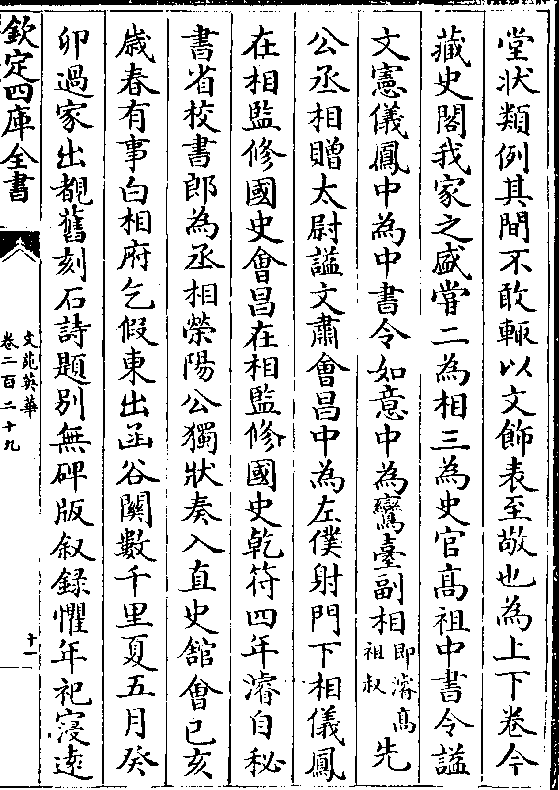 堂狀類例其間不敢輙以文飾表至敬也為上下卷今
藏史閣我家之盛嘗二為相三為史官髙祖中書令諡
文憲儀鳳中為中書令如意中為鸞臺副相即濬髙祖叔先
公丞相贈太尉諡文肅會昌中為左僕射門下相儀鳳
在相監修國史會昌在相監修國史乾符四年濬自秘
書省校書郎為丞相滎陽公獨狀奏入直史館會已亥
歳春有事白相府乞假東出函谷關數千里夏五月癸
卯過家出覩舊刻石詩題別無碑版叙録懼年祀寖逺
欽定四庫全書
文苑英華
卷二百二十九
十一